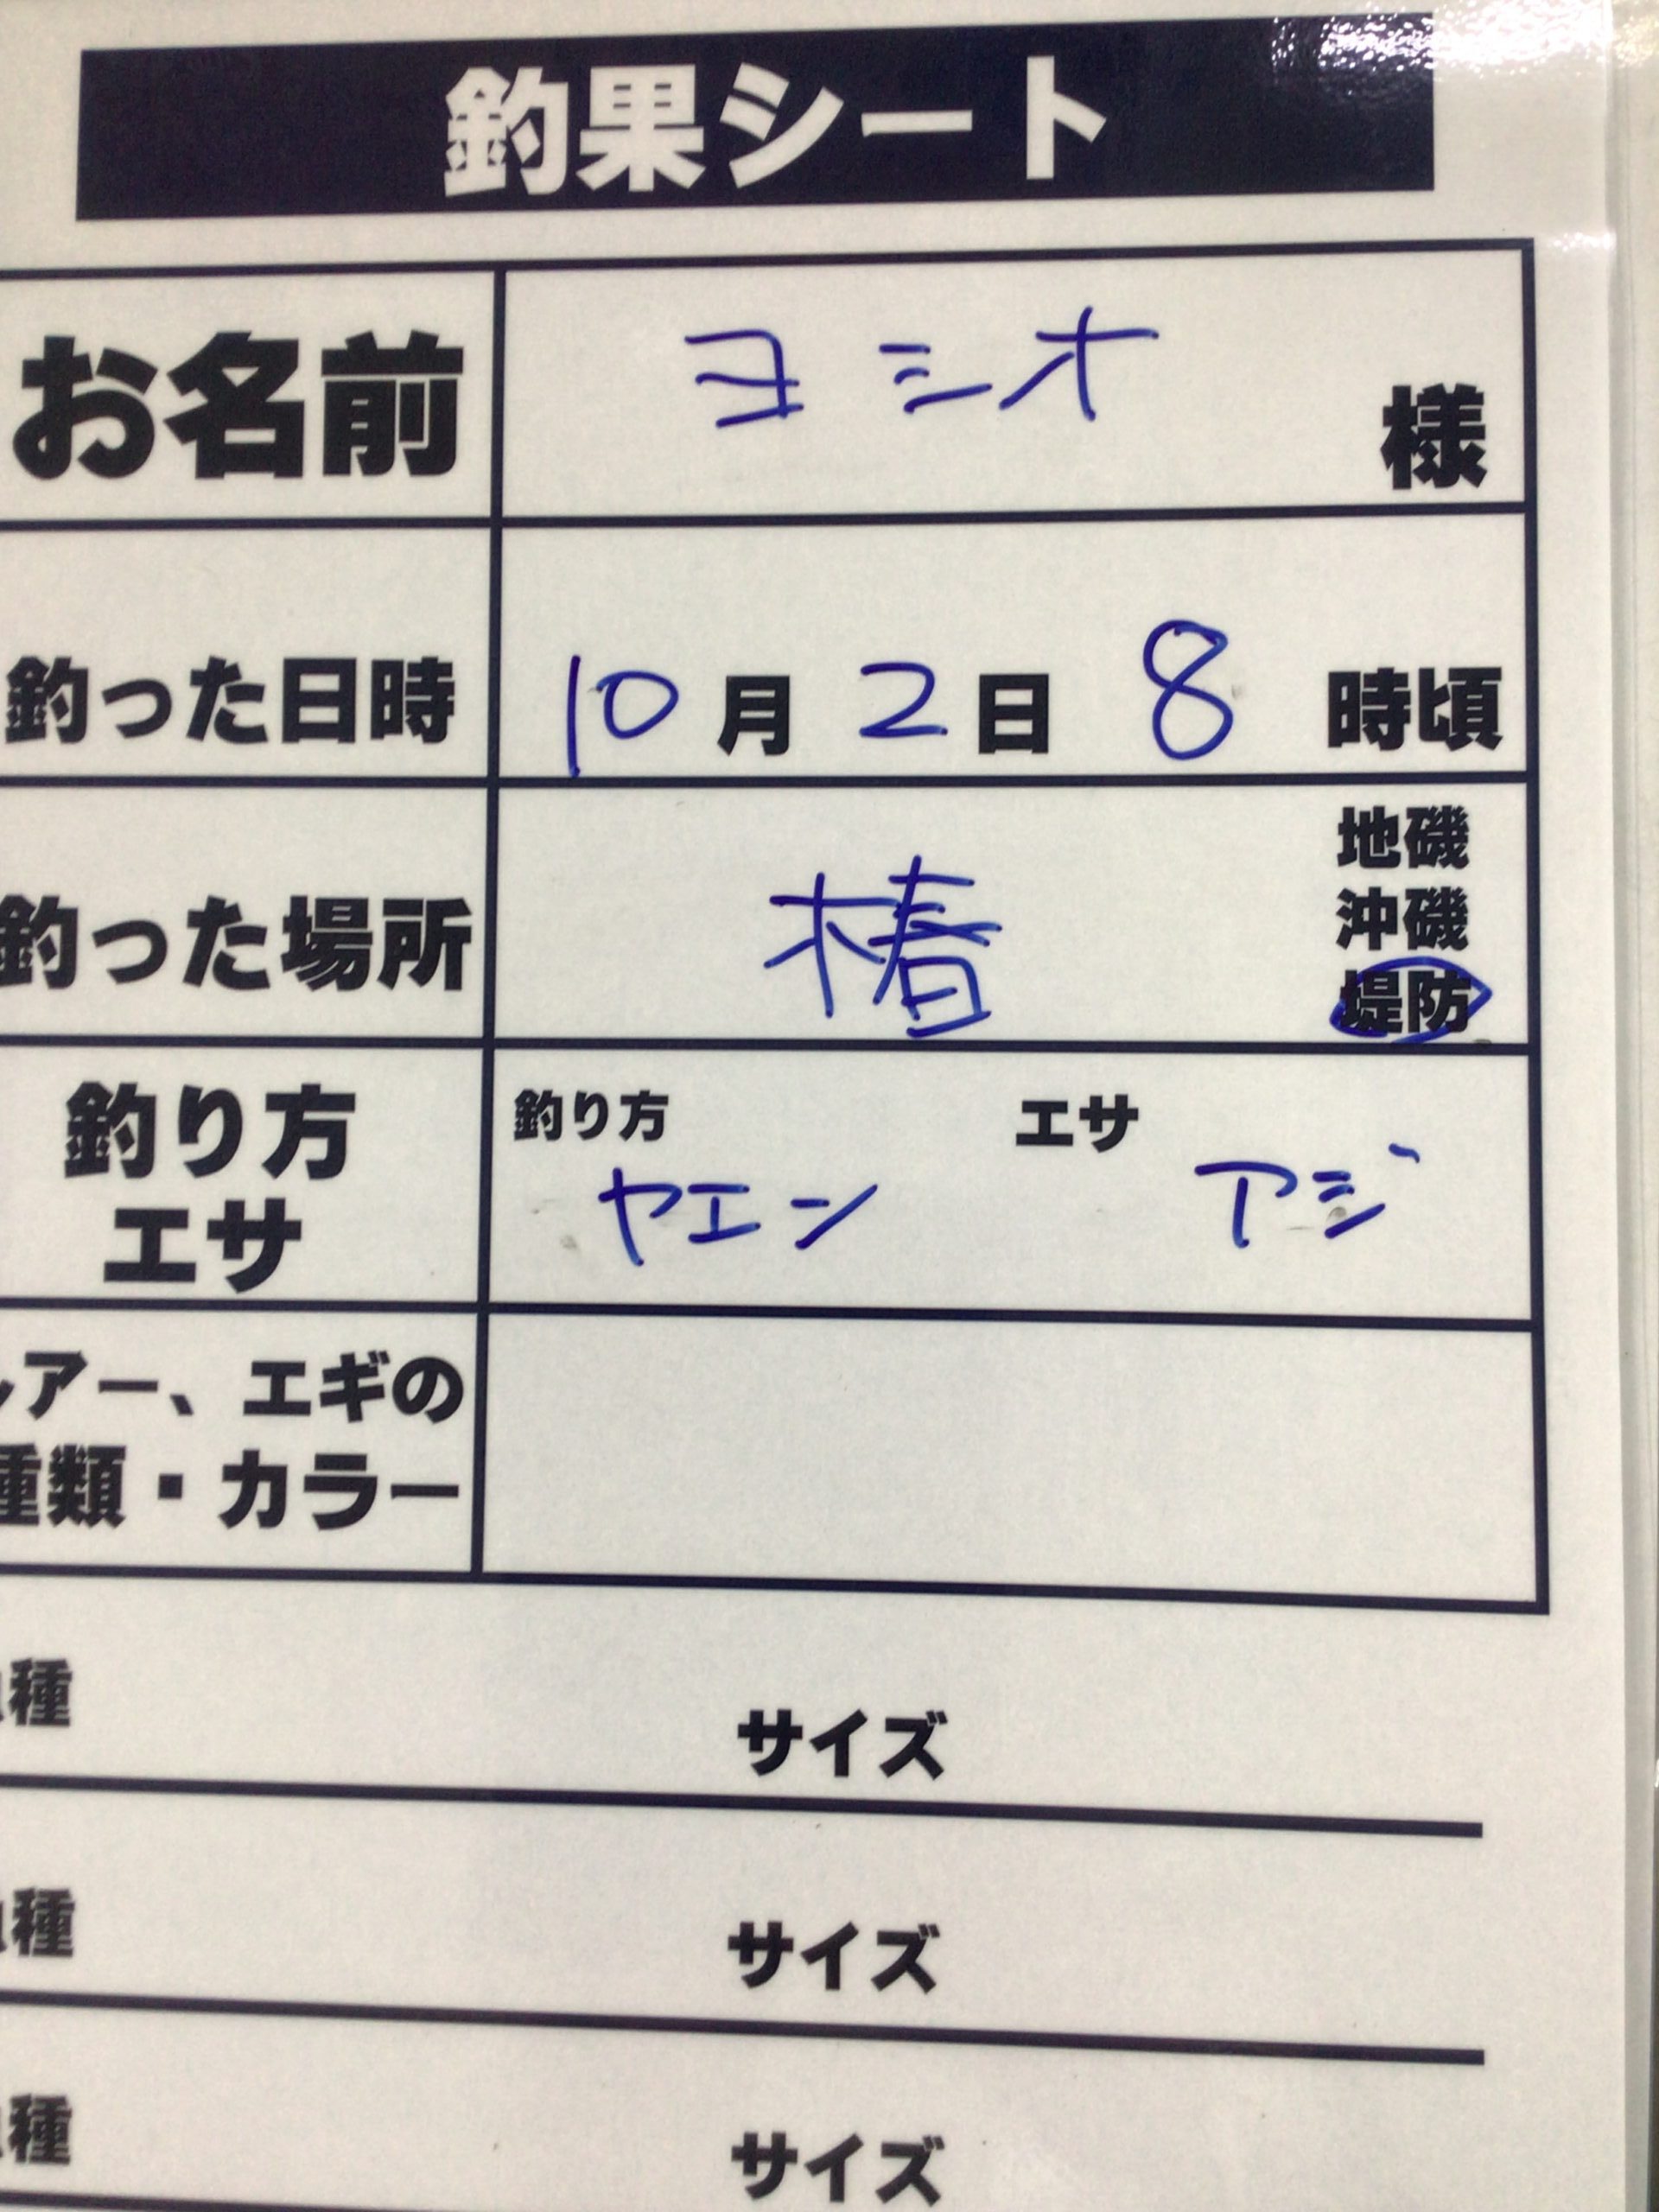 釣果シート
お名前 ヨシオ 様
釣った日時 10月2日 8時頃
釣った場所 椿
地磯
沖磯
堤防
釣り方
エサ
釣り方 エサ
ヤエン アジ
ルアー、エギの
種類・カラー
魚種 サイズ
魚種 サイズ
魚種 サイズ